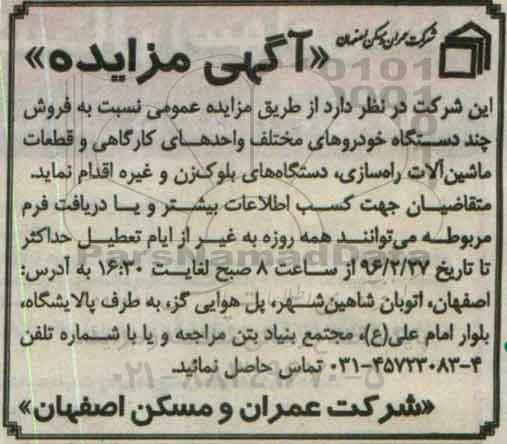 شرکت عمران و مسکن اصفهان
«آگهی مزایده»
این شرکت در نظر دارد از طریق مزایده عمومی نسبت به فروش
چند دستگاه خودروهای مختلف واحدهای کارگاهی و قطعات
ماشین‌آلات راه‌سازی، دستگاه‌های بلوک‌زن و غیره اقدام نماید.
متقاضیان جهت کسب اطلاعات بیشتر و یا دریافت فرم
مربوطه می‌توانند همه روزه به غیر از ایام تعطیل حداکثر
تا تاریخ ۹۶/۲/۲۷ از ساعت ۸ صبح لغایت ۱۶:۳۰ به آدرس:
اصفهان، اتوبان شاهین‌شهر، پل هوایی گز، به طرف پالایشگاه،
بلوار امام علی(ع)، مجتمع بنیاد بتن مراجعه و یا با شماره تلفن
۰۳۱-۴۵۷۲۳۰۸۳-۴ تماس حاصل نمائید.
«شرکت عمران و مسکن اصفهان»
ParsNamadData